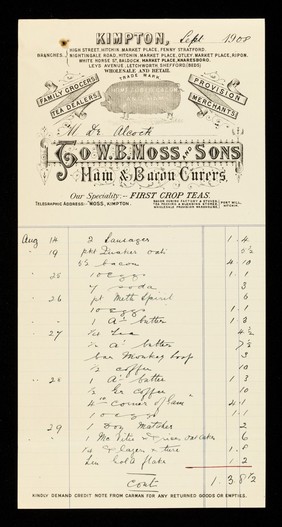 KIMPTON, Sept 1908
HIGH STREET, HITCHIN. MARKET PLACE, FENNY STRATFORD.
BRANCHES NIGHTINGALE ROAD, HITCHIN. MARKET PLACE, OTLEY. MARKET PLACE, RIPON.
WHITE HORSE ST, BALDOCK. MARKET PLACE, KNARESBORO.
LEYS AVENUE, LETCHWORTH. SHEFFORD (BEDS)
WHOLESALE AND RETAIL
TRADE MARK
FAMILY GROCERS
TEA DEALERS
PROVISION
MERCHANTS
Alcock
To W.B. MOSS AND SONS
Ham & Bacon Curers,
Our Speciality:- FIRST CROP TEAS.
TELEGRAPHIC ADDRESS: "MOSS, KIMPTON.
Aug 14 2 Sausages 1 4
19 pkt Quaker oats 5½
bacon 4 10
25 10 eggs 1
soda 3
26 pt Meth Spirit 6
10 eggs 1
1 butter 1 3
27 Tea 4½
butter 7½
bar Monkey Soap 3
½ coffee 10
28 1 butter 1 3
½ coffee 10
corner of ham 4 1
10 eggs 1
29 1 Doz Matches 2
6
1
1 2
Cont 1 3 8½
KINDLY DEMAND CREDIT NOTE FROM CARMAN FOR ANY RETURNED GOODS OR EMPTIES.